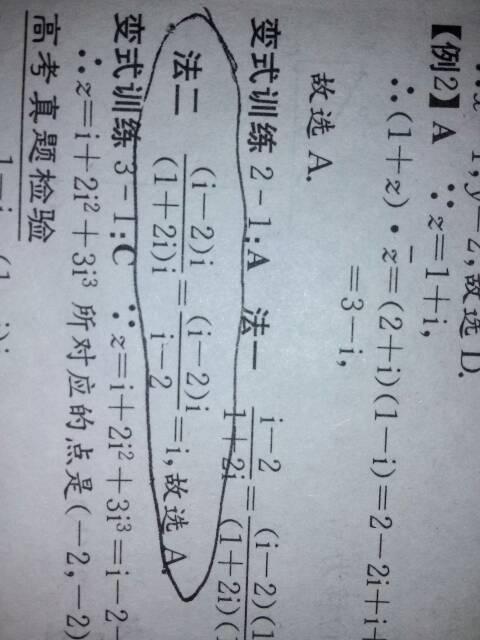 1,y=2,故选 D.
【例2】A ∵z=1+i,
∴(1+z)·z̄=(2+i)(1-i)=2-2i+i
=3-i,
故选 A.
变式训练 2-1:A 法一 \frac{i-2}{1+2i}=\frac{(i-2)(1}{(1+2i)(1}
法二 \frac{(i-2)i}{(1+2i)i}=\frac{(i-2)i}{i-2}=i,故选 A.
变式训练 3-1:C ∵z=i+2i²+3i³=i-2-
∴z=i+2i²+3i³ 所对应的点是(-2,-2)
高考真题检验